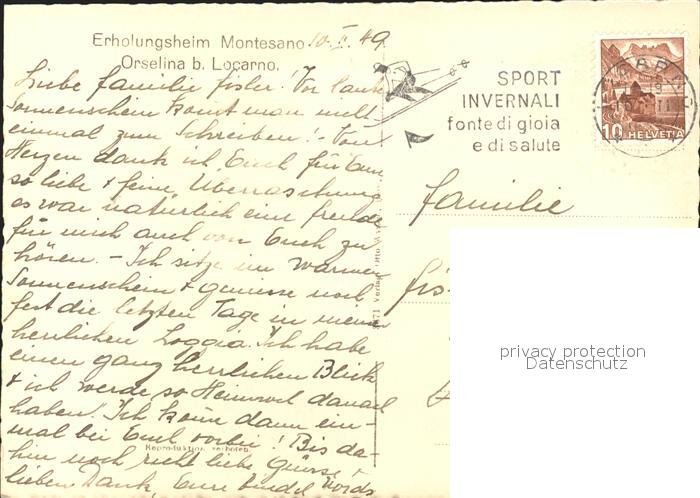 Erholungsheim Montesano 10.II.49
Orselina b. Locarno.
Liebe Familie Fisler! Vor lauter
Sonnenschein komt man nicht
einmal zum Schreiben! – Von
Herzen dank ich Euch für Eure
so liebe + feine Überraschung
es war natürlich eine Freude
für mich auch von Euch zu
hören. – Ich sitze im warmen
Sonnenschein + geniesse noch
fest die letzten Tage in meiner
herrlichen Loggia. Ich habe
einen ganz herrlichen Blick
+ ich werde so Heimweh danach
haben! Ich komm dann ein-
mal bei Euch vorbei! Bis da-
hin noch recht liebe Grüsse +
lieben Dank, Eure
Reproduktion verboten
SPORT
INVERNALI
fonte di gioia
e di salute
10 HELVETIA
Familie
Fis
privacy protection
Datenschutz